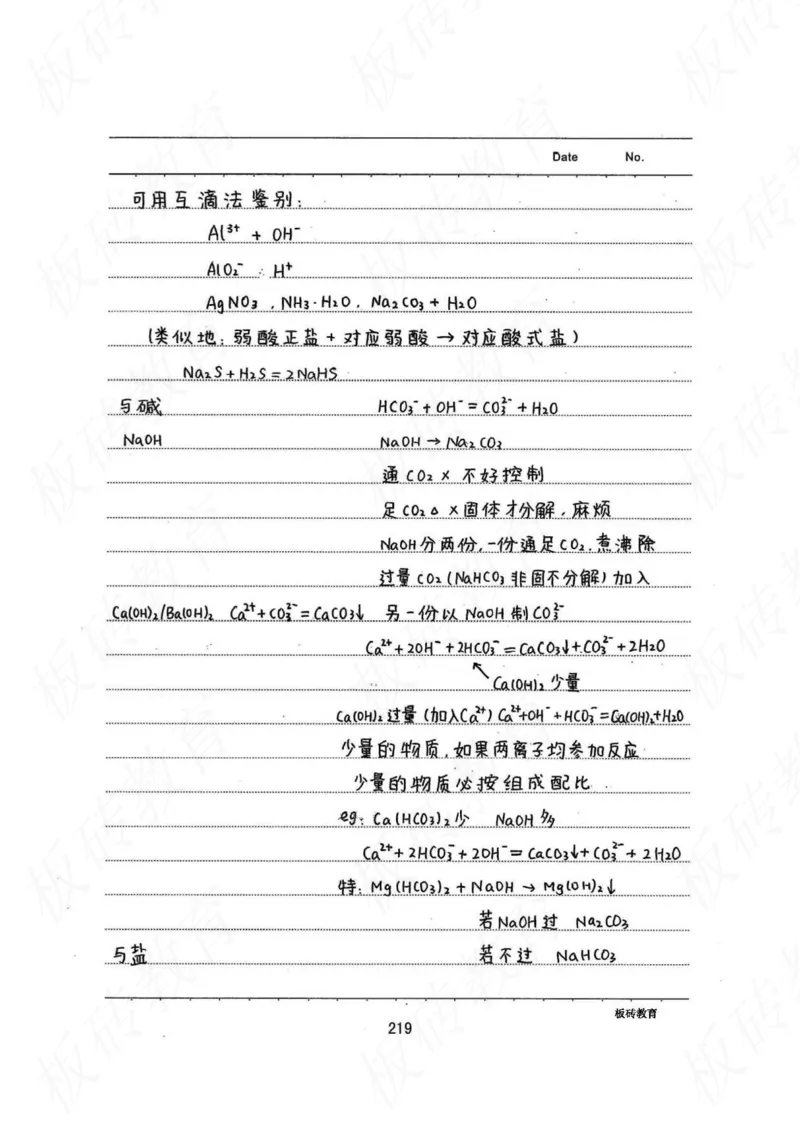 Date No.
可用互滴法鉴别:
Al³⁺ + OH⁻
AlO₂⁻ : H⁺
AgNO₃ . NH₃·H₂O . Na₂CO₃ + H₂O
(类似地: 弱酸正盐 + 对应弱酸 → 对应酸式盐)
Na₂S + H₂S = 2NaHS
与碱 HCO₃⁻ + OH⁻ = CO₃²⁻ + H₂O
NaOH NaOH → Na₂CO₃
通 CO₂ × 不好控制
足 CO₂ △ ×固体才分解,麻烦
NaOH 分两份,一份通足CO₂,煮沸除
过量CO₂(NaHCO₃非固不分解)加入
Ca(OH)₂/Ba(OH)₂ Ca²⁺ + CO₃²⁻ = CaCO₃↓ 另一份以 NaOH 制 CO₃²⁻
Ca²⁺ + 2OH⁻ + 2HCO₃⁻ = CaCO₃↓ + CO₃²⁻ + 2H₂O
↖ Ca(OH)₂ 少量
Ca(OH)₂过量(加入Ca²⁺) Ca²⁺+OH⁻+HCO₃⁻=Ca(OH)₂+H₂O
少量的物质,如果两离子均参加反应
少量的物质必按组成配比
eg: Ca(HCO₃)₂少 NaOH 多
Ca²⁺ + 2HCO₃⁻ + 2OH⁻ = CaCO₃↓ + CO₃²⁻ + 2H₂O
特: Mg(HCO₃)₂ + NaOH → Mg(OH)₂↓
若NaOH过 Na₂CO₃
与盐 若不过 NaHCO₃
板砖教育
219